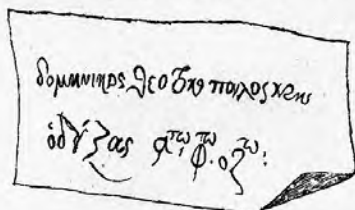 δομήνικος θεοτοκόπουλος κρης
ὁ δείξας